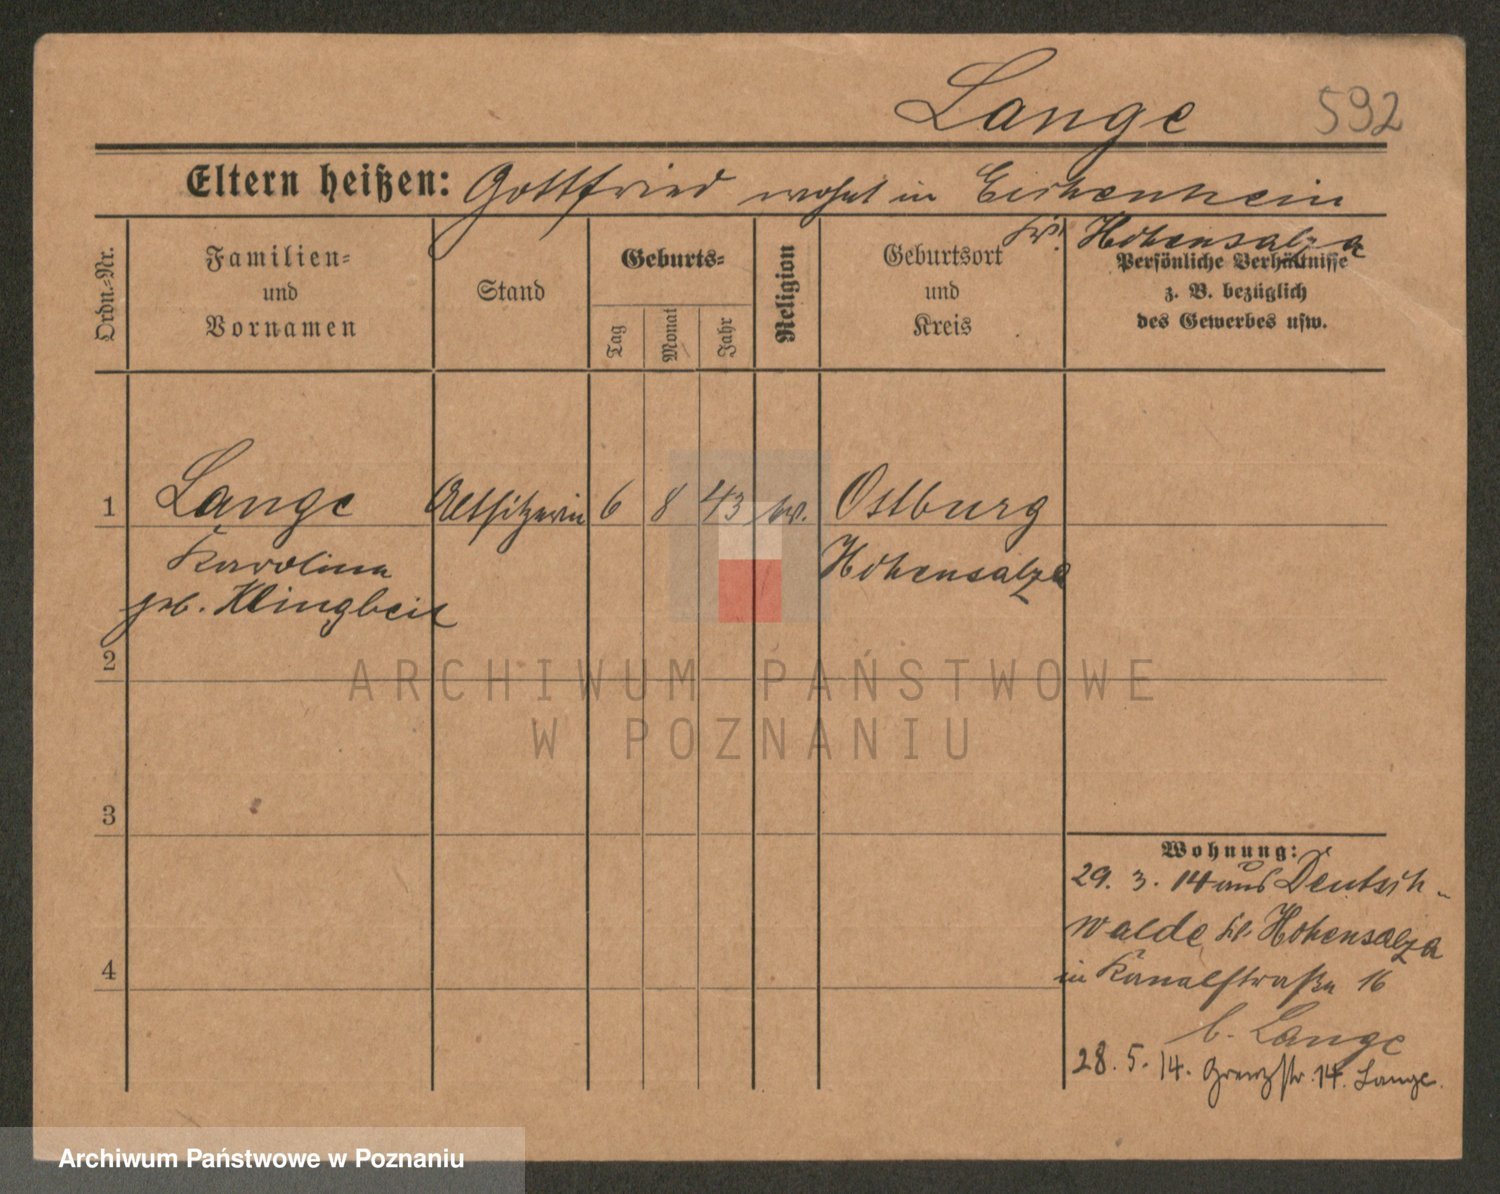 Lange 592
Eltern heißen: Gottfried wohnt in
Kr. Hohensalza
Ordn.-Nr.
Familien-
und
Vornamen
Stand
Geburts-
Tag
Monat
Jahr
Religion
Geburtsort
und
Kreis
Persönliche Verhältnisse
z. B. bezüglich
des Gewerbes usw.
1 Lange Altsitzerin 6 8 43 Ostburg
Karolina Hohensalza
geb. Klingbeil
2
3
4
Wohnung:
29. 3. 14 aus Deutsch-
walde Kr. Hohensalza
in Kanalstraße 16
b. Lange
28. 5. 14. Grenzstr. 14. Lange.
ARCHIWUM PAŃSTWOWE
W POZNANIU
Archiwum Państwowe w Poznaniu